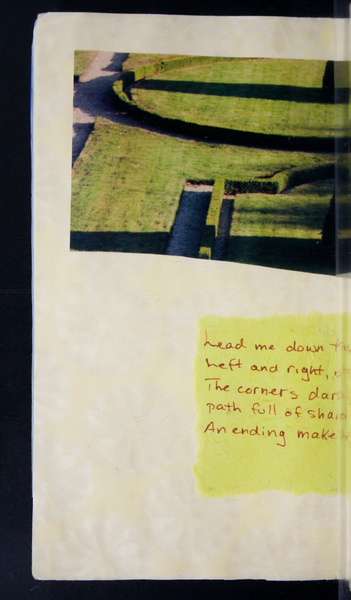 Lead me down
Left and right,
The corners dar
path full of sha
An ending make